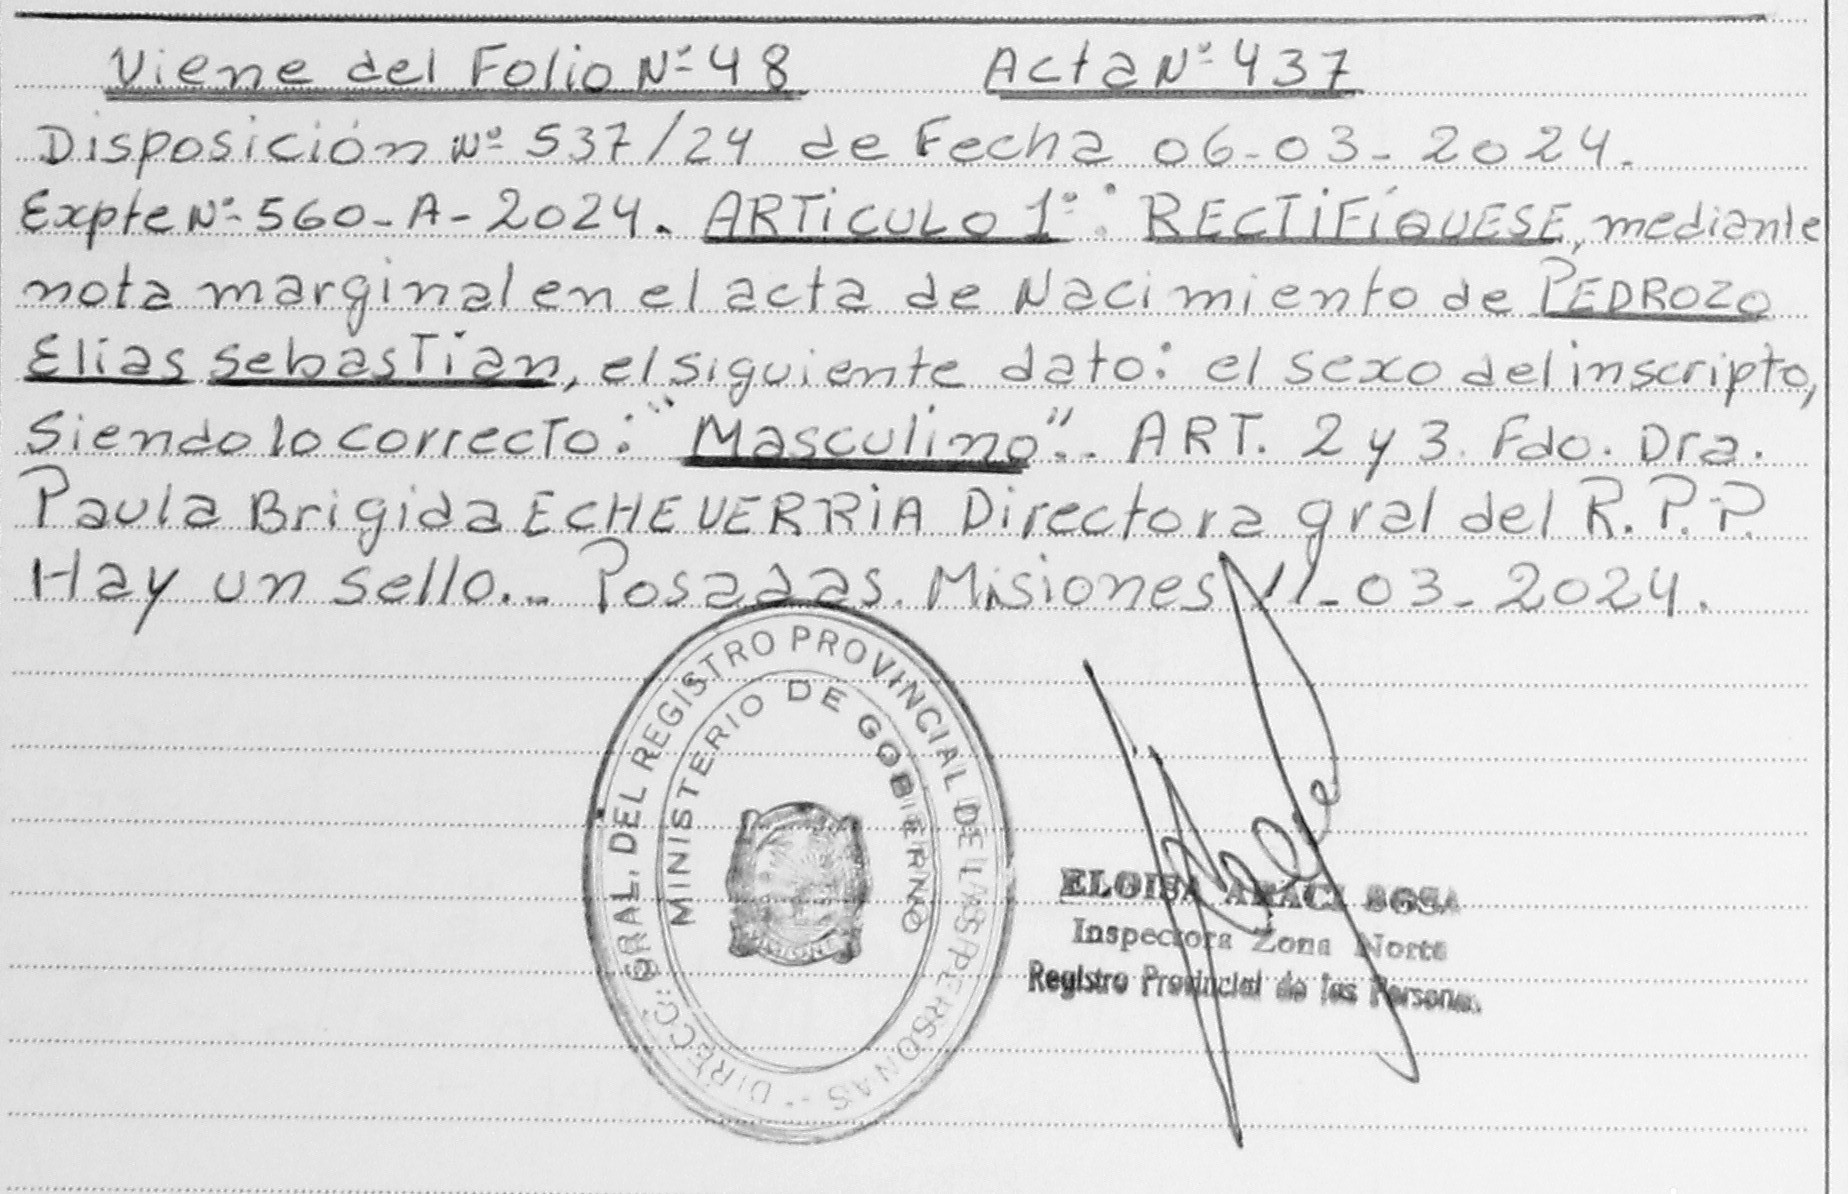 Viene del Folio Nº 48 Acta Nº 437
Disposición Nº 537/24 de Fecha 06-03-2024.
Expte Nº 560-A-2024. ARTiCULO 1º: RECTiFíQUESE, mediante
nota marginal en el acta de Nacimiento de PEDROZO
Elias Sebastian, el siguiente dato: el sexo del inscripto,
Siendo lo correcto: "Masculino". ART. 2 y 3. Fdo. Dra.
Paula Brigida ECHEVERRiA Directora gral del R.P.P.
Hay un sello.. Posadas. Misiones 11-03-2024.
DIRECC. GRAL. DEL REGISTRO PROVINCIAL DE LAS PERSONAS
MINISTERIO DE GOBIERNO
ELOISA ARACI SOSA
Inspectora Zona Norte
Registro Provincial de las Personas